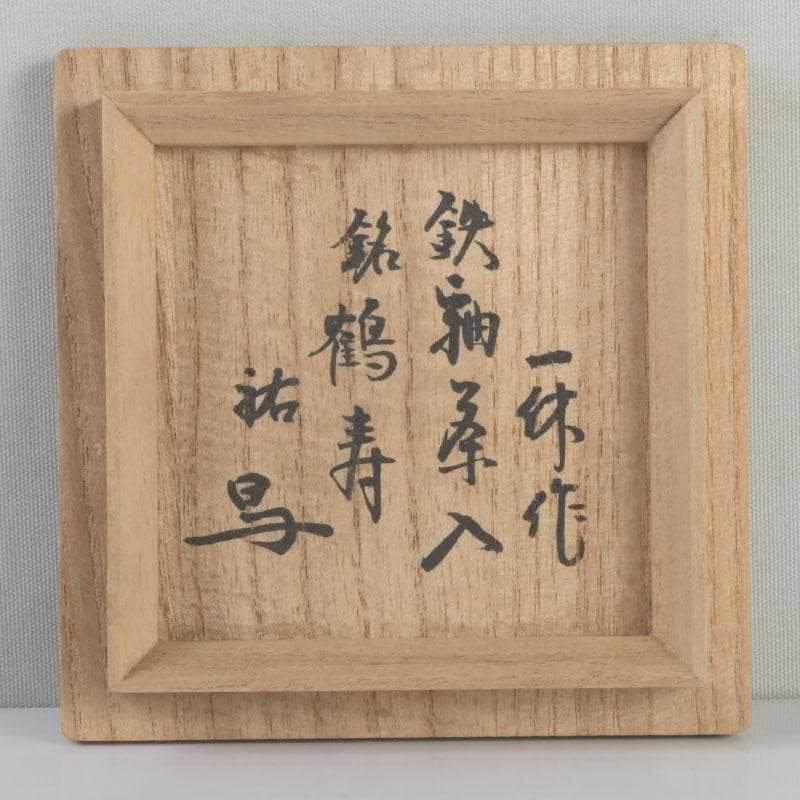 一休作
鉄釉茶入
銘鶴寿
祐